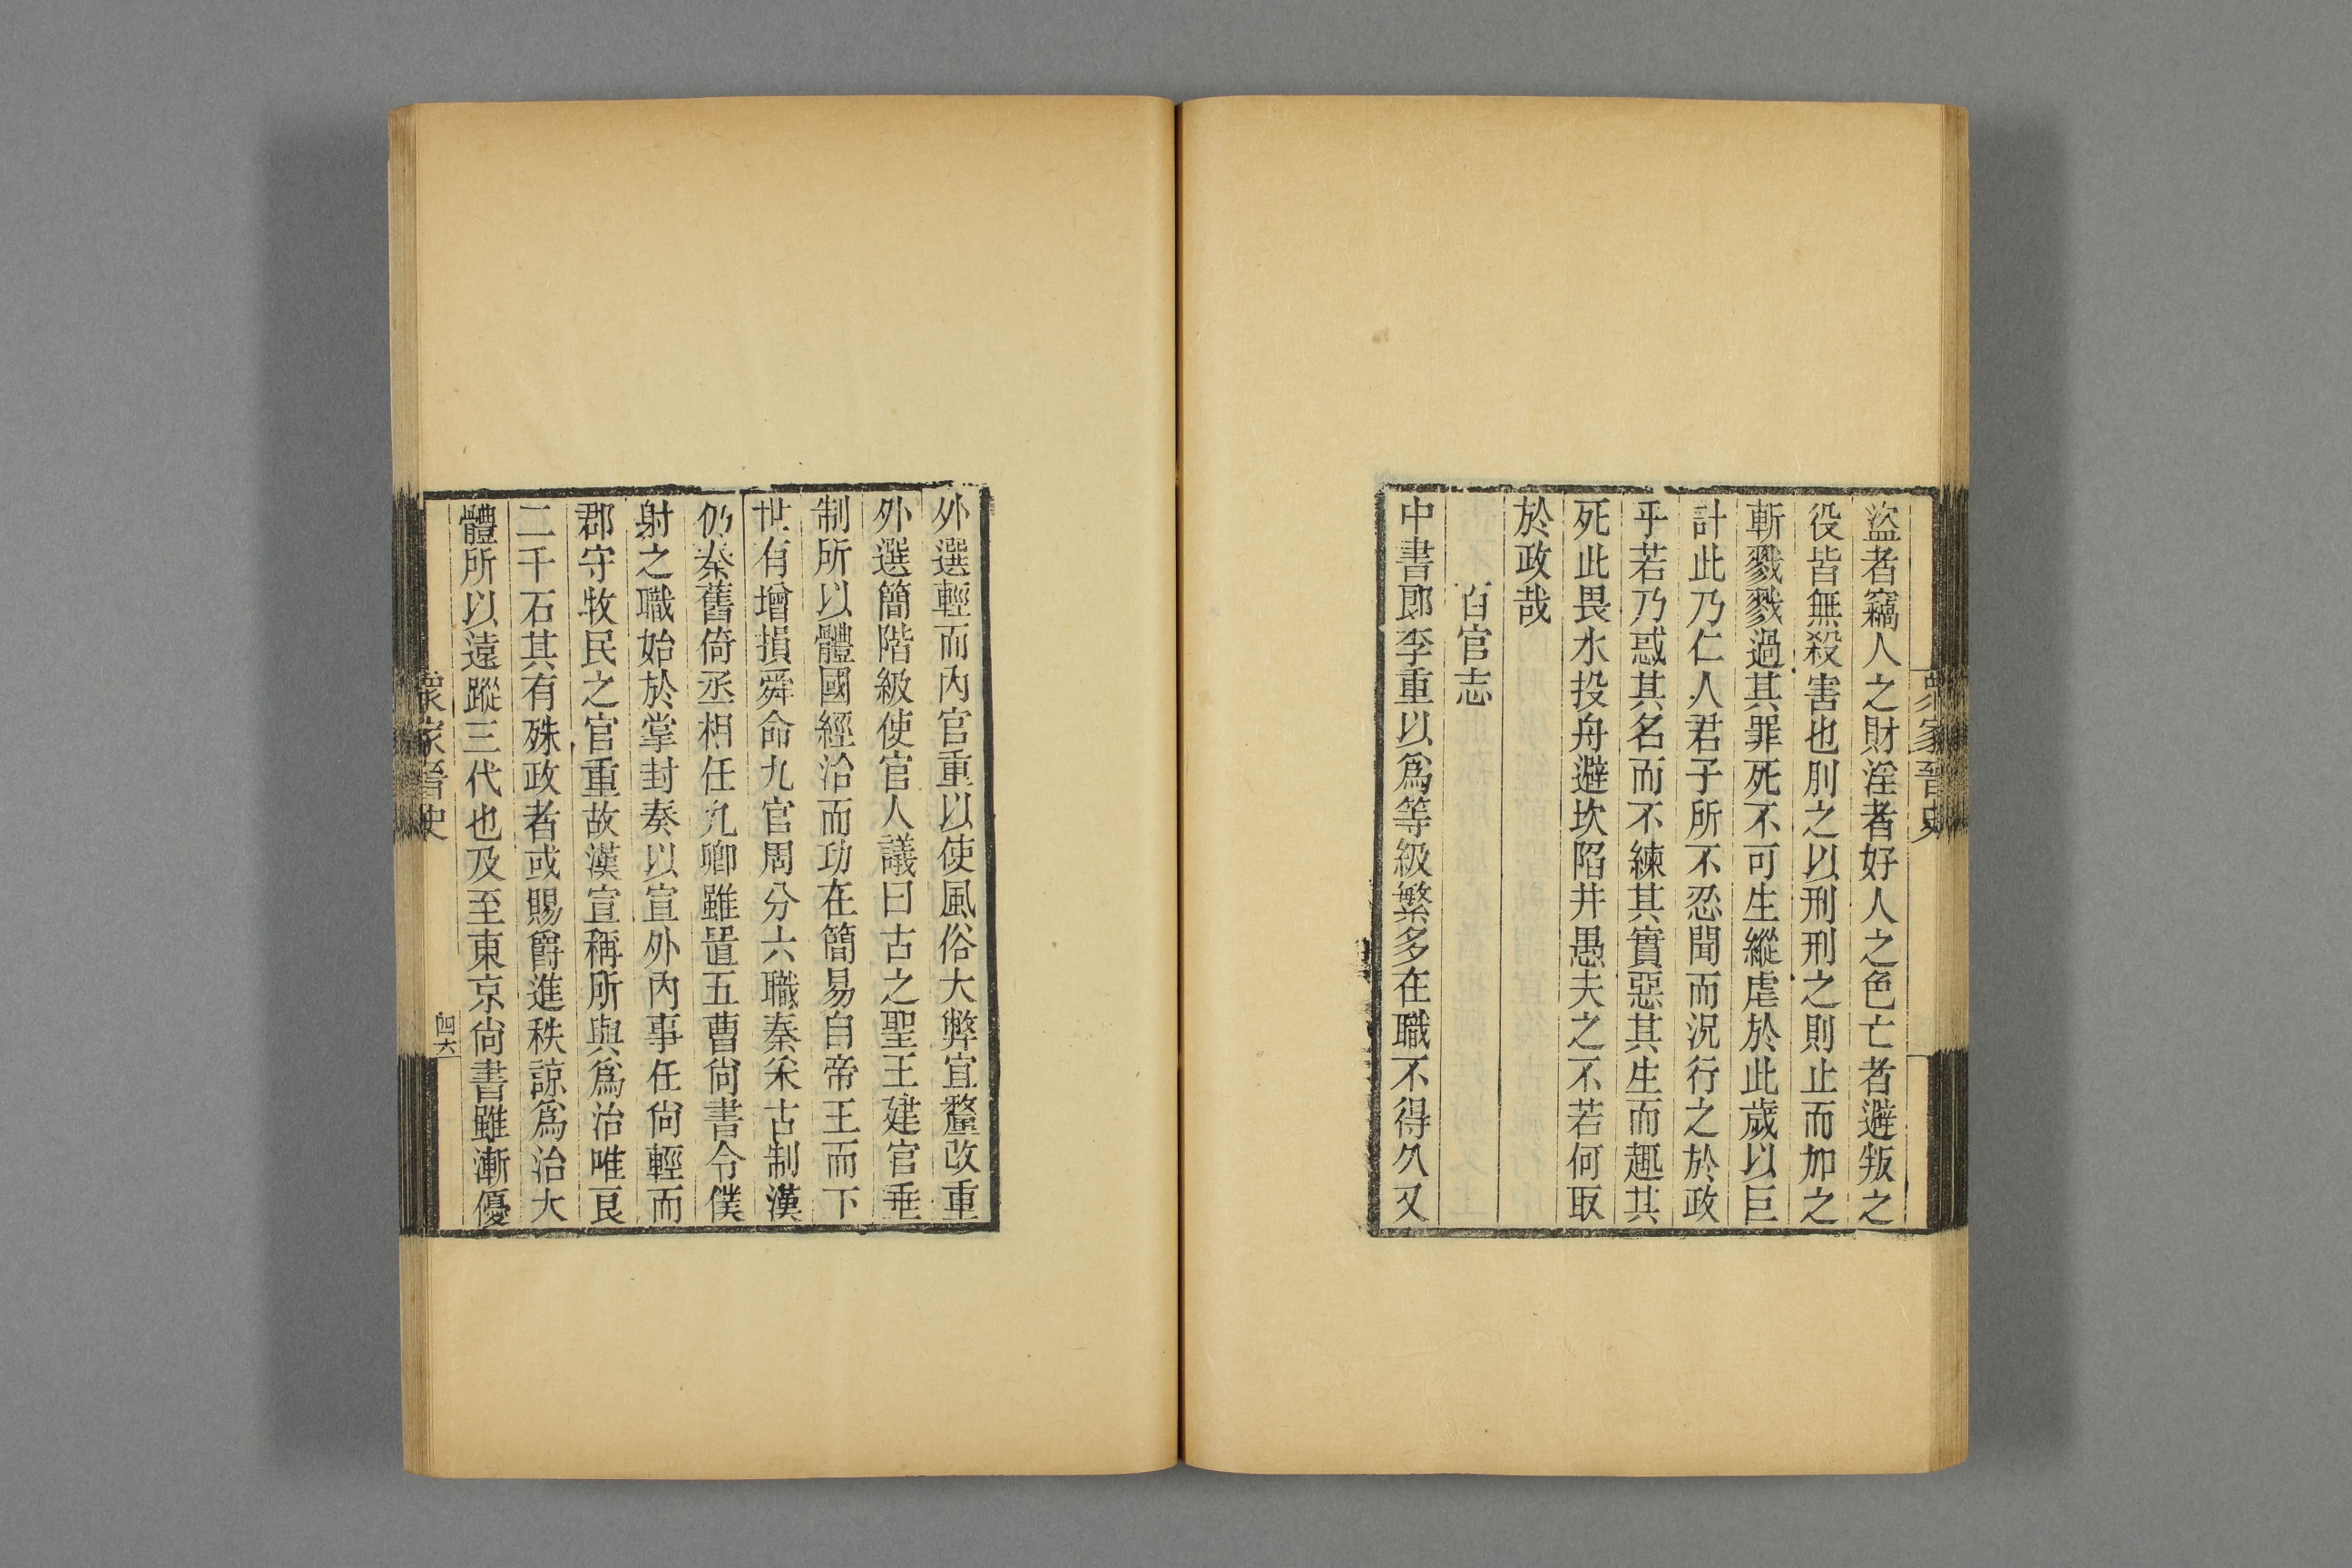 眾家晉史
盜者竊人之財淫者好人之色亡者避叛之
役皆無殺害也刖之以刑刑之則止而加之
斬戮戮過其罪死不可生縱虐於此歲以巨
計此乃仁人君子所不忍聞而況行之於政
乎若乃惑其名而不練其實惡其生而趣其
死此畏水投舟避坎陷井愚夫之不若何取
於政哉
百官志
中書郎李重以爲等級繁多在職不得久又
外選輕而內官重以使風俗大弊宜釐改重
外選簡階級使官人議曰古之聖王建官垂
制所以體國經治而功在簡易自帝王而下
世有增損舜命九官周分六職秦采古制漢
仍秦舊倚丞相任九卿雖置五曹尚書令僕
射之職始於掌封奏以宣外內事任尚輕而
郡守牧民之官重故漢宣稱所與爲治唯良
二千石其有殊政者或賜爵進秩諒爲治大
體所以遠蹤三代也及至東京尚書雖漸優
眾家晉史
四六